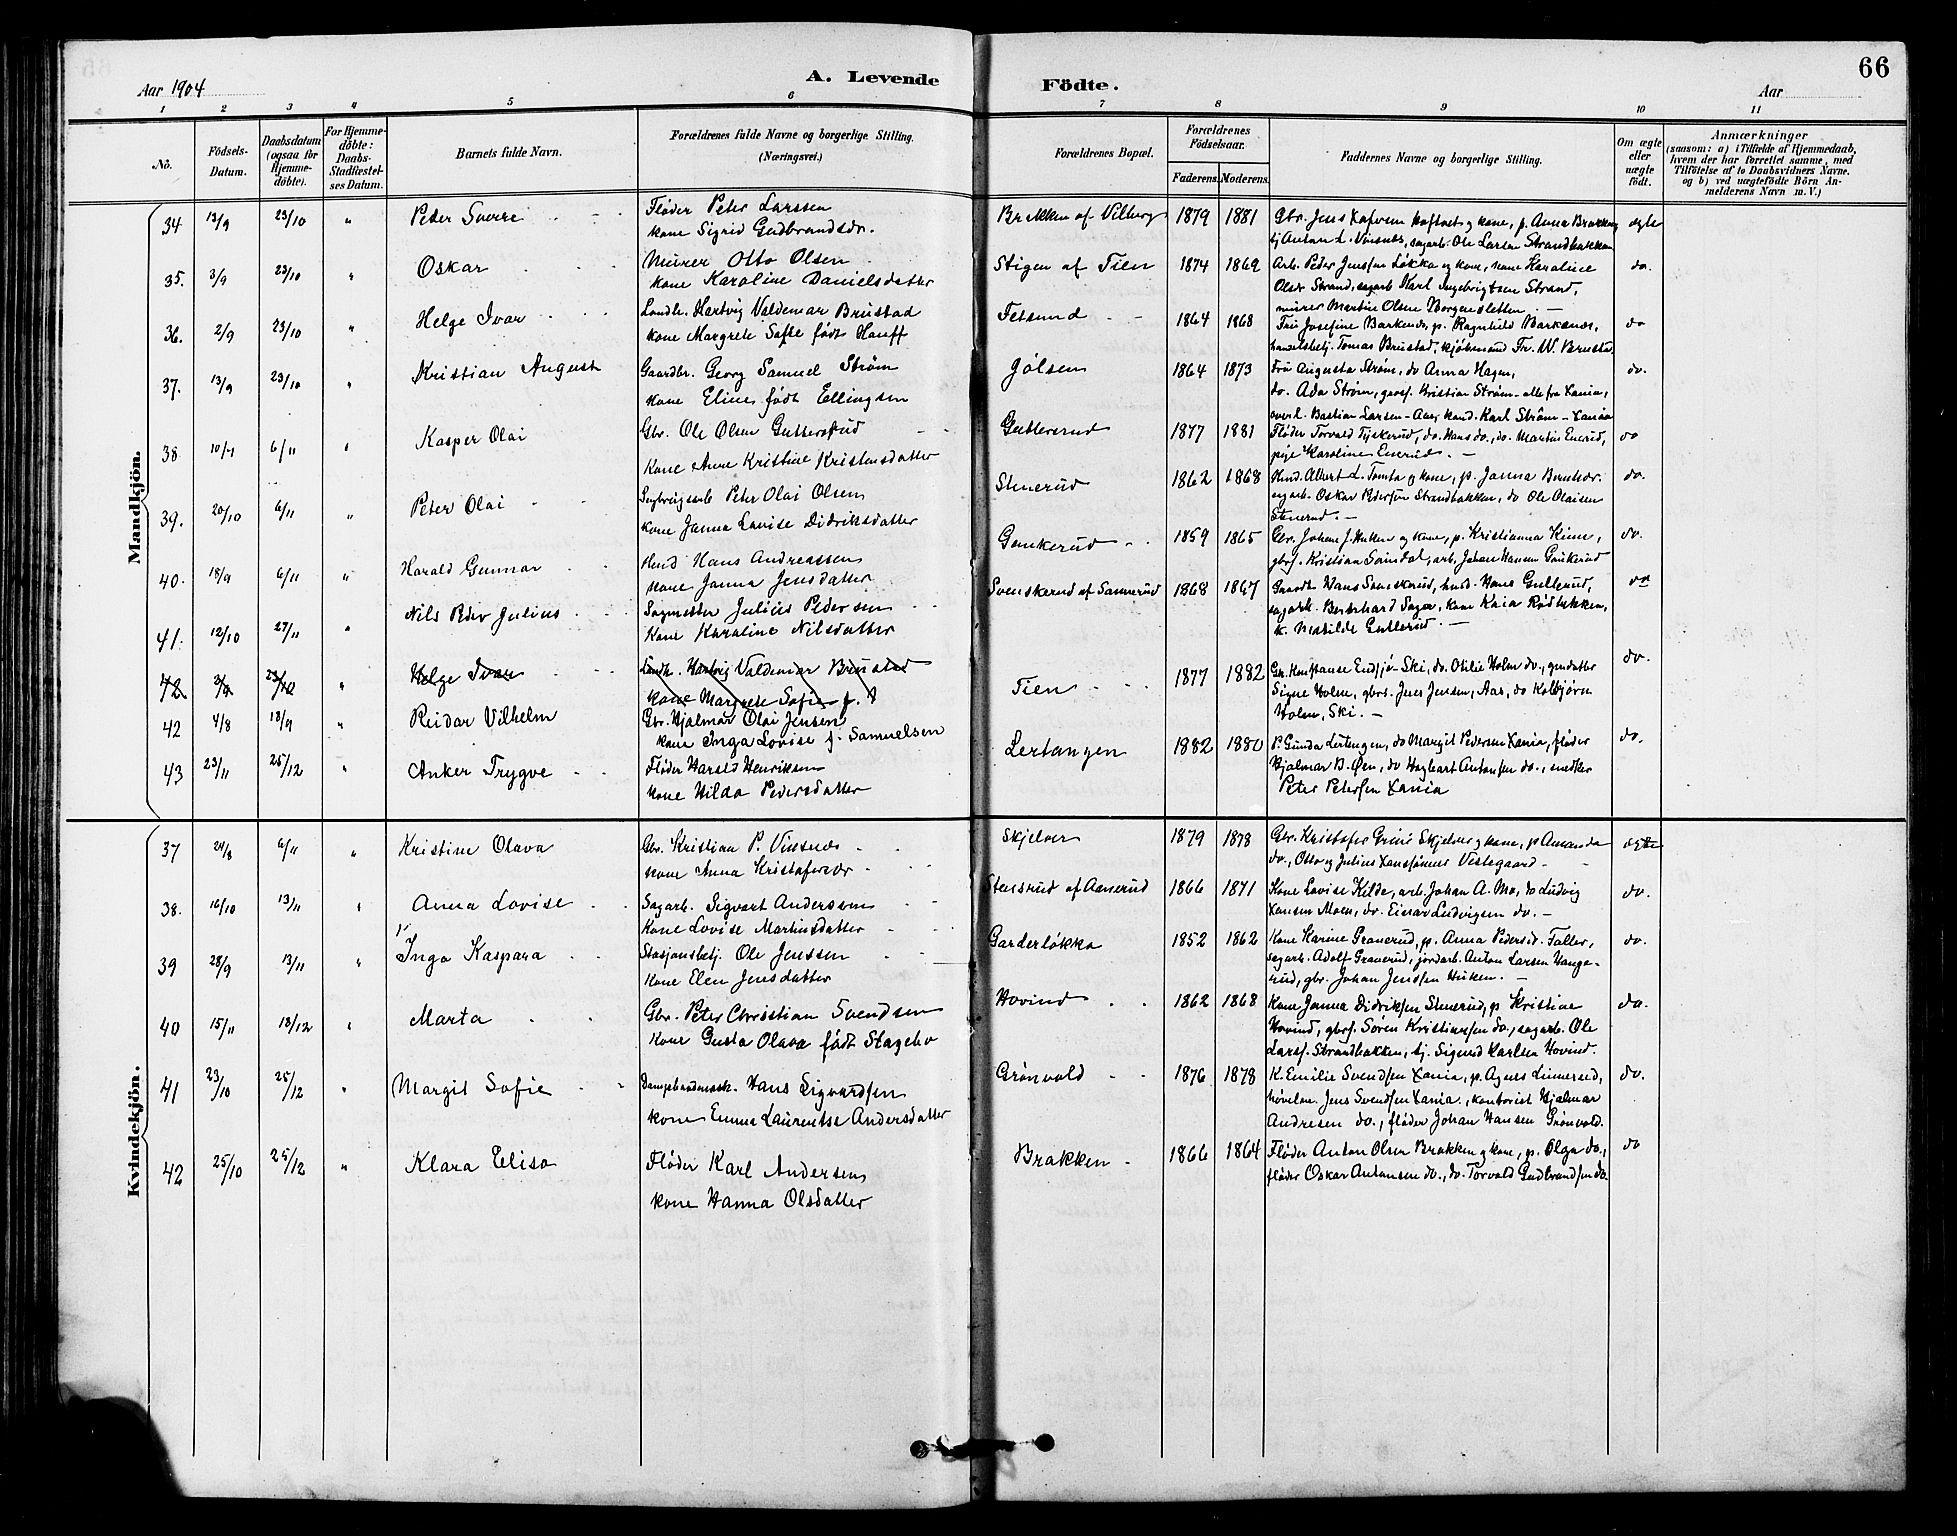 66
Aar 1904
A. Levende
Födte.
Aar
1 2 3 4 5 6 7 8 9 10 11
No.
Födsels-Datum.
Daabsdatum (ogsaa for Hjemme-döbte).
For Hjemme-döbte: Daabs-Stadfæstel-ses Datum.
Barnets fulde Navn.
Forældrenes fulde Navne og borgerlige Stilling. (Næringsvei.)
Forældrenes Bopæl.
Forældrenes Födselsaar.
Faderens. Moderens.
Faddernes Navne og borgerlige Stilling.
Om ægte eller uægte födt.
Anmærkninger
(saasom: a) i Tilfælde af Hjemmedaab, hvem der har forrettet samme, med Tilföielse af to Daabsvidners Navne. og b) ved uægtefödte Börn An-melderens Navn m. V.)
Mandkjön.
34 13/9 23/10 " Peter Sverre Fløder Peter Larssen
kone Sigrid Gudbrandsdr.
Brækken af Vilberg 1879 1881 Gbr. Jens Hoftvet og kone, p. Anna Brækken, ægte
tj Anton L. Vinsnes, sagarb. Ole Larsen Strandbakken
35. 3/9 23/10 " Oskar Murer Otto Olsen
kone Karoline Danielsdatter
Stigen af Tien 1874 1869 Arb. Peder Jenssen Løkka og kone, kone Karoline do.
Olsdr Strand, sagarb Karl Ingebrigtsen Strand,
murer Martin Olsen Borgensletten. —
36. 2/9 23/10 " Helge Ivar Landh. Hartvig Valdemar Brustad
kone Margrete Sofie født Hauff
Fetsund 1864 1868 Fru Josefine Barkenæs, p. Ragnhild Barkenæs, do
handelsbetj. Tomas Brustad, kjøbmand Fr. W. Brustad
37. 13/9 23/10 " Kristian August Gaardbr. Georg Samuel Strøm
kone Eline født Ellingsen
Jølsen 1864 1873 Fru Augusta Strøm, do Anna Hagen, do.
do. Ada Strøm, gross. Kristian Strøm - alle fra Xania,
overl. Bastian Larsen - Aas, kand. Karl Strøm - Xania
38 10/9 6/11 " Kasper Olai Gbr. Ole Olsen Gutterud
Kone Anne Kristine Kristensdatter
Guttersrud 1877 1881 Fløder Torvald Tyskerud, do. Hans do., do. Martin Enerud, do
pige Karoline Enerud. —
39. 20/10 6/11 " Peter Olai Peter Olai Olsen
kone Janna Lovise Didriksdatter
Stenerud 1862 1868 Albert L. Tomta og kone, p. Janna do.
sagarb. Oskar Pedersen Strandbakken, do Ole Olaisen
Stenerud. —
40. 18/9 6/11 " Harald Gunnar Hmd Hans Andreassen
kone Janna Jensdatter
Gunkerud 1859 1865 Gbr. Johan J. Huken og kone, p. Kristianna Kinn, do.
gbrs. Kristian Sandal, arb. Johan Hansen Gunkerud
41. 12/10 27/11 " Nils Peder Julius Sagmester Julius Pedersen
Kone Karoline Nilsdatter
Svenskerud af Sannerud 1868 1867 Gaardb. Hans Svenskerud, husd. Hans Gullerud, do
sagarb. Bernhard Saga, kone Kaia Rødbekken,
k. Matilde Gullerud. —
42. 2/9 23/10 " Helge Ivar Landh. Hartvig Valdemar Brustad
kone Margrete Sofie f. H
42 4/8 18/9 " Reidar Vilhelm Gbr. Hjalmar Olai Jensen
kone Inga Lovise f. Samuelsen
Tien 1877 1882 Gk. Konstanse Endsjø - Ski, do. Otilie Holm do., grndatter do.
Signe Holm, gbrs. Jens Jensen, Aas, do Kolbjørn
Holm, Ski. —
43 23/11 25/12 " Anker Trygve Fløder Harald Henriksen
kone Hilda Pedersdatter
Lertangen 1882 1880 P. Gunda Lertangen, do Margit Pedersen Xania, fløder do.
Hjalmar B. Øen, do Hagbart Antonsen do., snedker
Peter Petersen Xania
Kvindekjön.
37 24/8 6/11 " Kristine Olava Gbr. Kristian P. Vinsnes
kone Anna Kristofersdr.
Skjelver 1879 1878 Gbr. Kristofer Skjelver og kone, p Amanda ægte
do., Otto og Julius Vestegaard
38. 16/10 13/11 " Anna Lovise Sagarb. Sigvart Andersen
Kone Lovise Martinsdatter
Stensrud af Aanerud 1866 1871 Kone Lovise Kilde, arb. Johan A. Mo, do Ludvig do.
Hansen Moen, do. Einar Ludvigsen do. —
39 28/9 13/11 " Inga Kaspara Stasjonsbetj. Ole Jenssen
Kone Elen Jensdatter
Garderløkka 1852 1862 Kone Karine Granerud, p. Anna Pedersd. Faller, do.
sagarb. Adolf Granerud, jordarb. Anton Larsen Hange-
rud, gbr. Johan Jenssen Huken. —
40 15/11 18/12 " Marta Gbr. Peter Christian Svendsen
Kone Gusta Olava født Stageho
Hovind 1862 1868 Kone Janna Didriksen Stenerud, p Kristine do.
Hovind, gbrs. Søren Kristiansen do., sagarb. Ole
Larss. Strandbakken, tj. Sigurd Karlsen Hovind.
41 23/10 25/12 " Margit Sofie Hans Sigvardsen
kone Emma Laurentse Andersdatter
Grønvold 1876 1878 K. Emilie Svendsen Xania, p. Agnes Linnerud, do.
høvelm. Jens Svendsen Xania., kontorist Hjalmar
Andresen do., fløder Johan Hansen Grønvold.
42 25/10 25/12 " Klara Elise Fløder Karl Andersen
kone Hanna Olsdatter
Brakken 1866 1864 Fløder Anton Olsen Brakken og kone, p. Olga do., do
fløder Oskar Antonsen do., do. Torvald Gudbrandsen do.